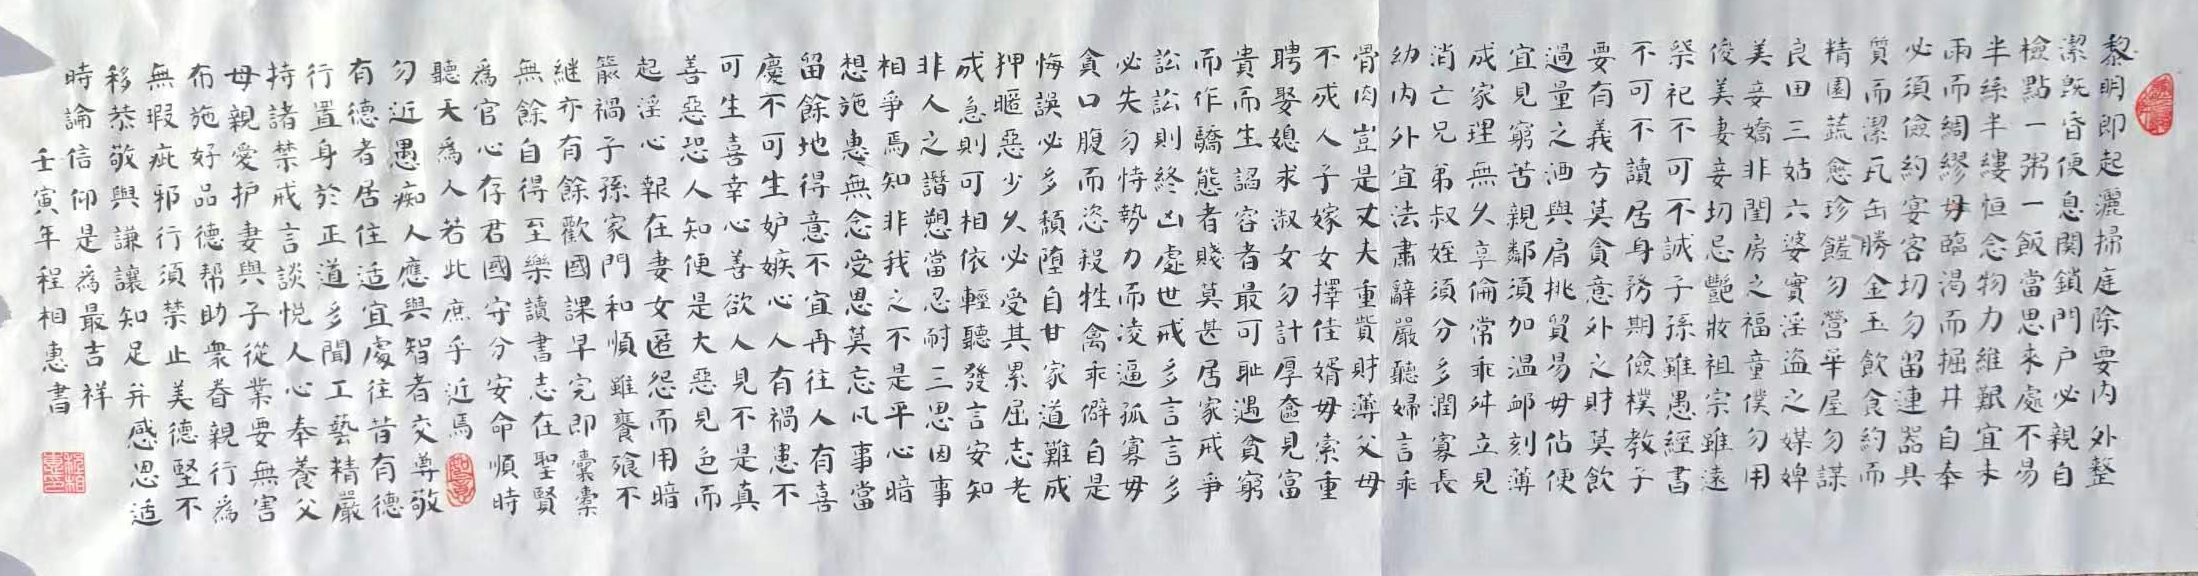 黎明即起灑掃庭除要內外整
潔既昏便息関鎖門户必親自
檢點一粥一飯當思來處不易
半絲半縷恒念物力維艱宜未
雨而綢繆毋臨渴而掘井自奉
必須儉約宴客切勿留連器具
質而潔瓦缶勝金玉飲食約而
精園蔬愈珍饈勿營華屋勿謀
良田三姑六婆實淫盜之媒婢
美妾嬌非閨房之福童僕勿用
俊美妻妾切忌艷妝祖宗雖遠
祭祀不可不誠子孫雖愚經書
不可不讀居身務期儉樸教子
要有義方莫貪意外之財莫飲
過量之酒與肩挑貿易毋佔便
宜見窮苦親鄰須加温邮刻薄
成家理無久享倫常乖舛立見
消亡兄弟叔姪須分多潤寡長
幼內外宜法肅辭嚴聽婦言乖
骨肉豈是丈夫重貲財薄父母
不成人子嫁女擇佳婿毋索重
聘娶媳求淑女勿計厚奩見富
貴而生諂容者最可恥遇貧窮
而作驕態者賤莫甚居家戒爭
訟訟則終凶處世戒多言言多
必失勿恃勢力而凌逼孤寡毋
貪口腹而恣殺牲禽乖僻自是
悔誤必多頹墮自甘家道難成
狎暱惡少久必受其累屈志老
成急則可相依輕聽發言安知
非人之譖愬當忍耐三思因事
相爭焉知非我之不是平心暗
想施惠無念受恩莫忘凡事當
留餘地得意不宜再往人有喜
慶不可生妒嫉心人有禍患不
可生喜幸心善欲人見不是真
善惡恐人知便是大惡見色而
起淫心報在妻女匿怨而用暗
箭禍子孫家門和順雖饔飧不
繼亦有餘歡國課早完即囊橐
無餘自得至樂讀書志在聖賢
為官心存君國守分安命順時
聽天為人若此庶乎近焉
勿近愚痴人應與智者交尊敬
有德者居住適宜處往昔有德
行置身於正道多聞工藝精嚴
持諸禁戒言談悦人心奉養父
母親愛护妻與子從業要無害
布施好品德帮助眾眷親行為
無瑕疵邪行須禁止美德堅不
移恭敬與謙讓知足并感恩適
時論信仰是為最吉祥
壬寅年程相惠書
程相惠印